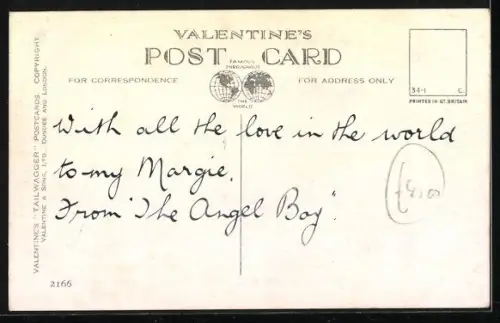 VALENTINE'S
POST CARD
FAMOUS THROUGHOUT
THE WORLD
FOR CORRESPONDENCE
FOR ADDRESS ONLY
34-1 C.
PRINTED IN GT. BRITAIN
VALENTINE'S "TAILWAGGER" POSTCARDS COPYRIGHT.
VALENTINE & SONS, LTD. DUNDEE AND LONDON.
With all the love in the world
to my Margie.
From "The Angel Boy".
2166